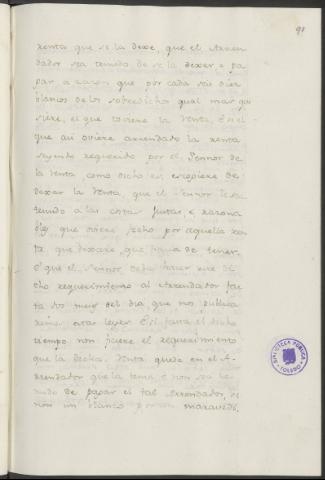 98
renta que se la dexe, que el Arren
dador sea tenudo de se la dexar, e pa
gar a razon que por cada seis diez
blancos de los sobredichos qual mas qui
siere, el que toviere la renta, E si el
que asi oviere arrendado la renta
seyendo requerido por el Sennor de
la renta como dicho es, escogiere de
dexar la renta, que el Sennor sea
tenudo a las costas justas, e razona
bles que oviere fecho por aquella ren
ta, que dexare, que havia de tener.
E que el Sennor deba hacer este di
cho requerimiento al Arrendador fas
ta dos meses del dia que nos publica
remos estas leyes E si fasta el dicho
tiempo non fuere el requerimiento
que la dicha renta quede en el A
rrendador que la tenia, e non sea te
nudo de pagar el tal Arrendador, si
non un blanco por un maravedi.
BIBLIOTECA PUBLICA
TOLEDO